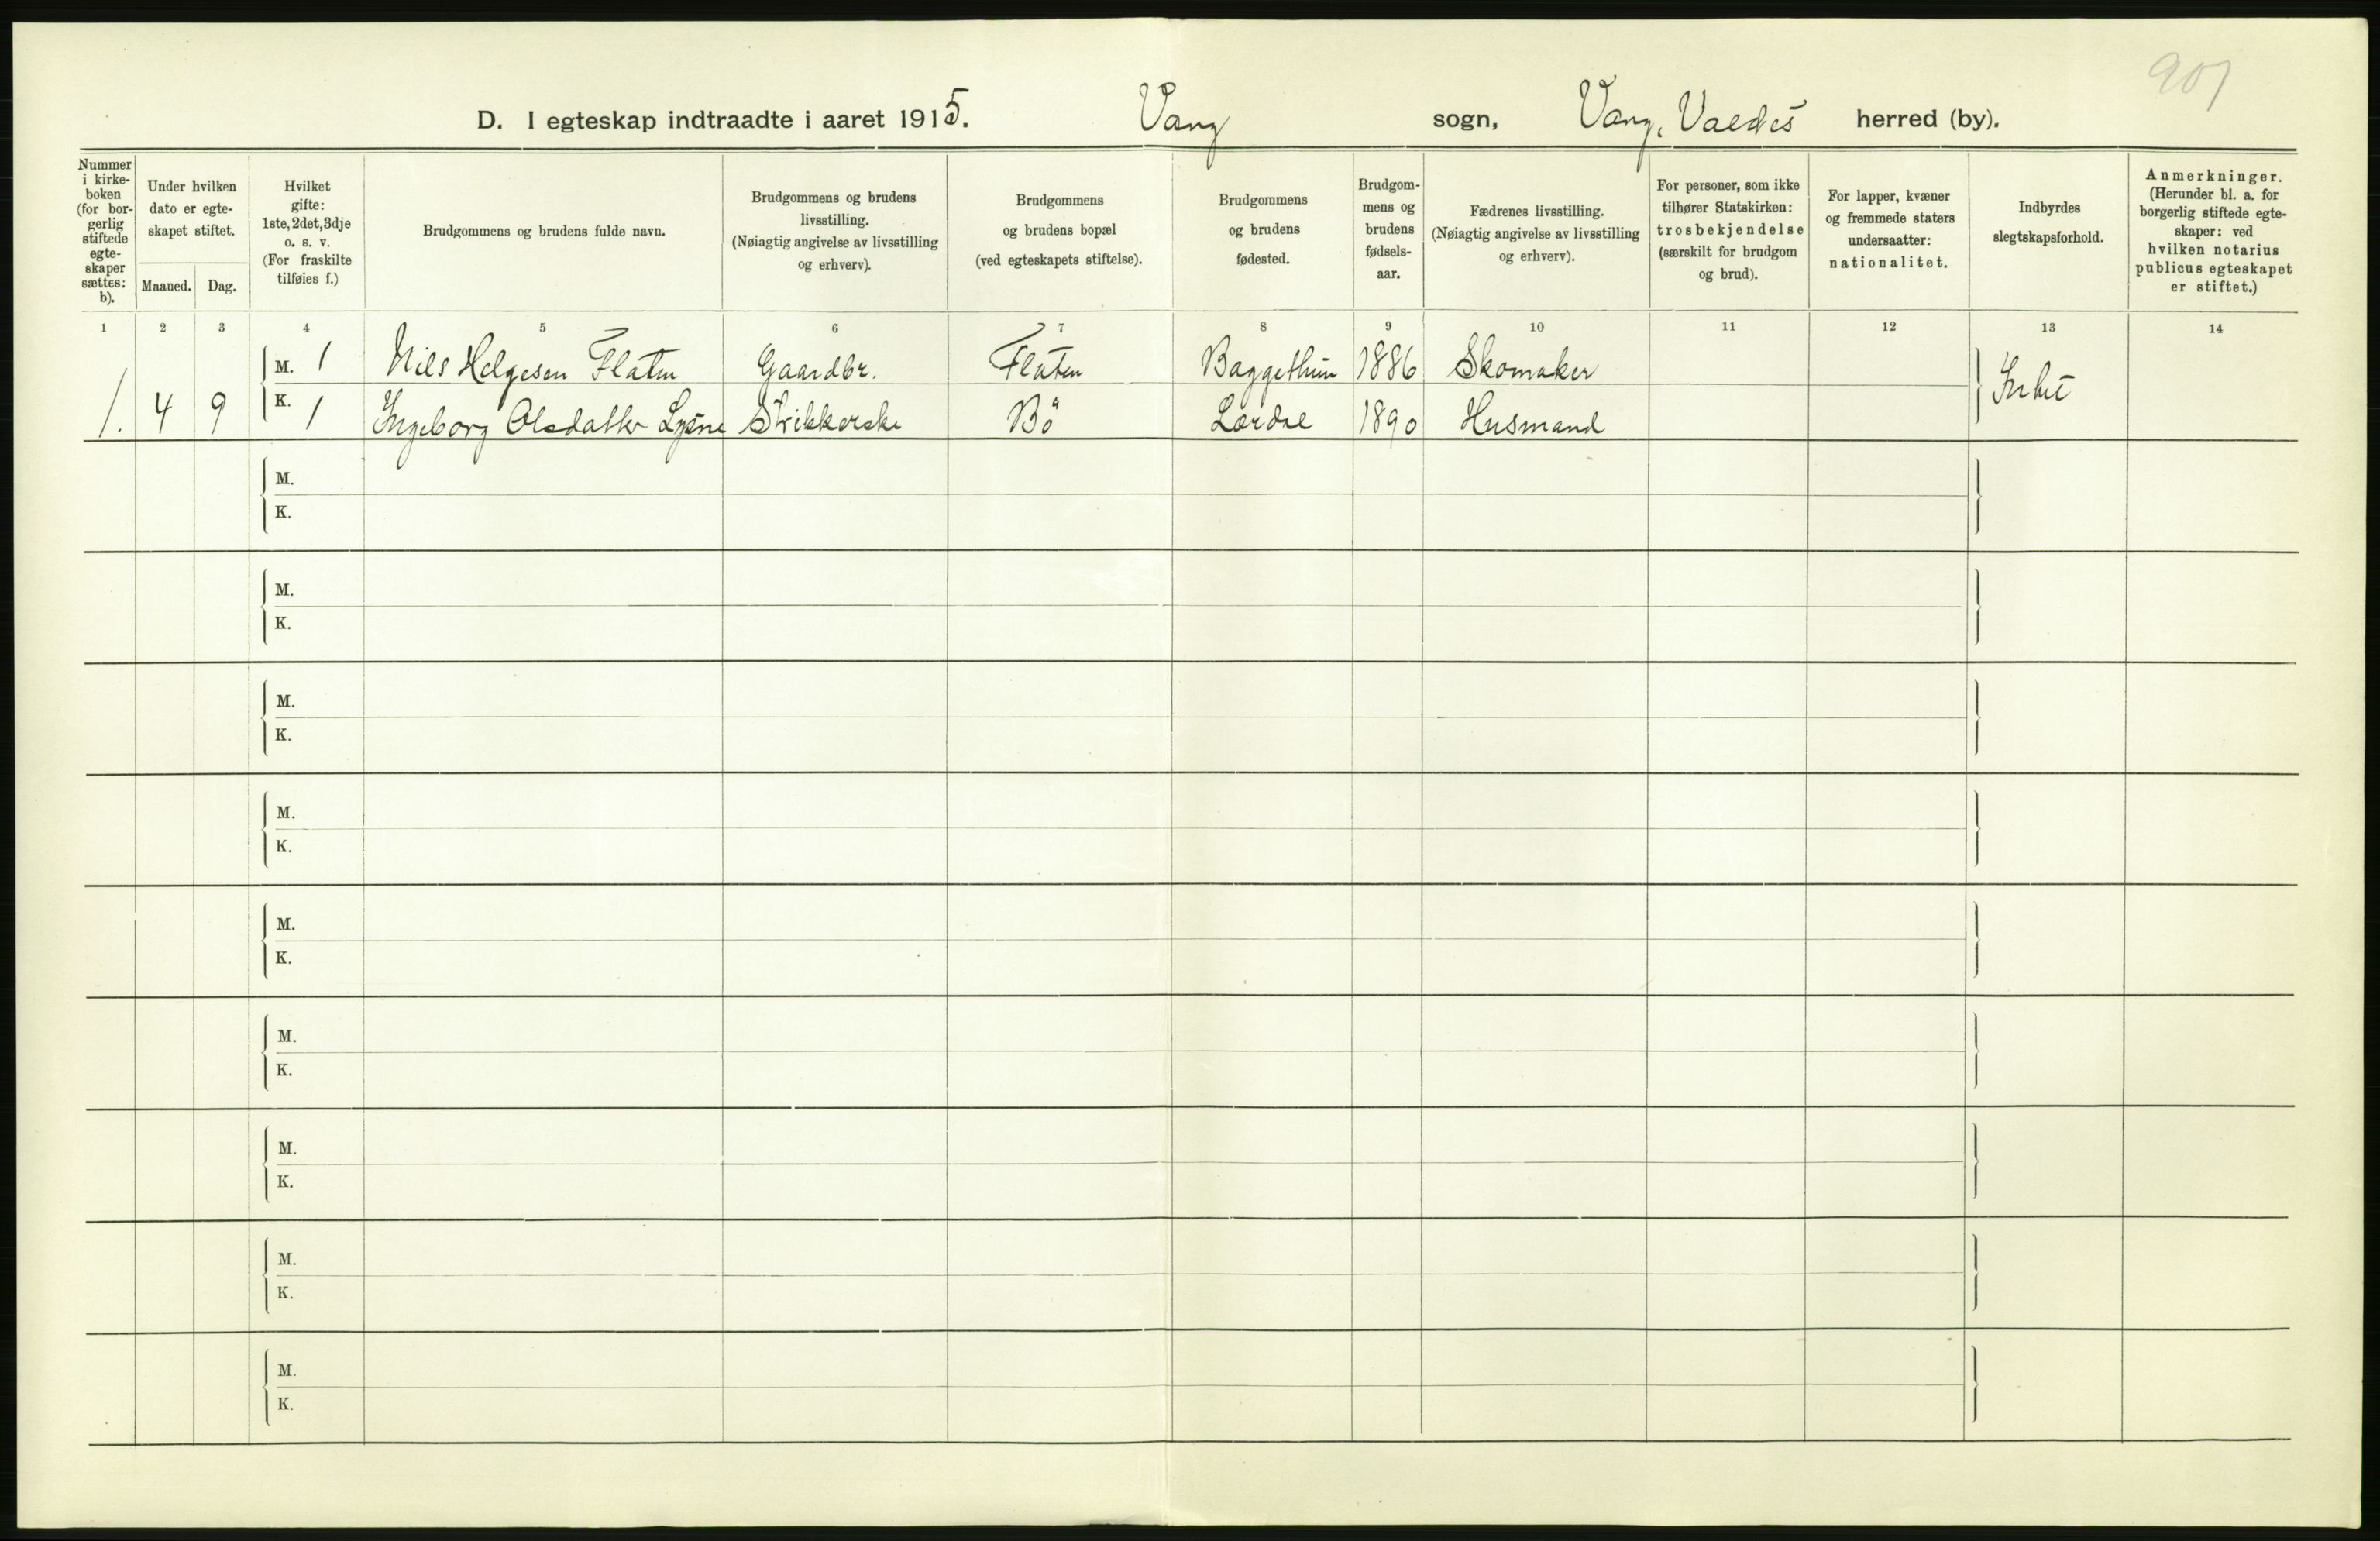 901
D. I egteskap indtraadte i aaret 1915. Vang sogn, Vang, Valdrs herred (by).
Nummer i kirke-boken (for bor-gerlig stiftede egte-skaper sættes: b).
Under hvilken dato er egte-skapet stiftet.
Maaned. Dag.
Hvilket gifte: 1ste, 2det, 3dje o. s. v. (For fraskilte tilføies f.)
Brudgommens og brudens fulde navn.
Brudgommens og brudens livsstilling. (Nøiagtig angivelse av livsstilling og erhverv).
Brudgommens og brudens bopæl (ved egteskapets stiftelse).
Brudgommens og brudens fødested.
Brudgom-mens og brudens fødsels-aar.
Fædrenes livsstilling. (Nøiagtig angivelse av livsstilling og erhverv).
For personer, som ikke tilhører Statskirken: trosbekjendelse (særskilt for brudgom og brud).
For lapper, kvæner og fremmede staters undersaatter: nationalitet.
Indbyrdes slegtskapsforhold.
Anmerkninger. (Herunder bl. a. for borgerlig stiftede egte-skaper: ved hvilken notarius publicus egteskapet er stiftet.)
1 2 3 4 5 6 7 8 9 10 11 12 13 14
M. 1 Nils Helgesen Flaten Gaardbr. Flaten Baggethun 1886 Skomaker Intet
1. 4 9 K. 1 Ingeborg Olsdatter Lysne Strikkerske Bö Lærdal 1890 Husmand
M.
K.
M.
K.
M.
K.
M.
K.
M.
K.
M.
K.
M.
K.
M.
K.
M.
K.